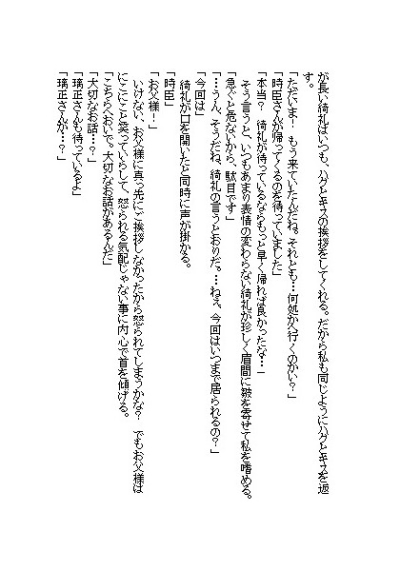 が長い綺礼はいつも、ハグとキスの挨拶をしてくれる。だから私も同じようにハグとキスを返
す。
「ただいま！　もう来ていたんだね。それとも…何処かへ行くのかい？」
「時臣さんが帰ってくるのを待っていました」
「本当？　綺礼が待っているならもっと早く帰れば良かったな…」
　そう言うと、いつもあまり表情の変わらない綺礼が珍しく眉間に皺を寄せて私を嗜める。
「急ぐと危ないから、駄目です」
「…うん、そうだね、綺礼の言うとおりだ。…ねぇ、今回はいつまで居られるの？」
「今回は」
　綺礼が口を開いたと同時に声が掛かる。
「時臣」
「お父様！」
　いけない、お父様に真っ先にご挨拶しなかったから怒られてしまうかな？　でもお父様は
にこにこと笑っていらして、怒られる気配じゃない事に内心で首を傾げる。
「こちらへおいで。大切なお話があるんだ」
「大切なお話…？」
「璃正さんも待っているよ」
「璃正さんが…？」